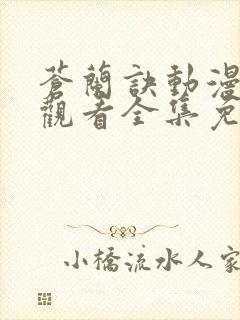 蒼蘭訣動漫
觀看全集免
小橋流水人家